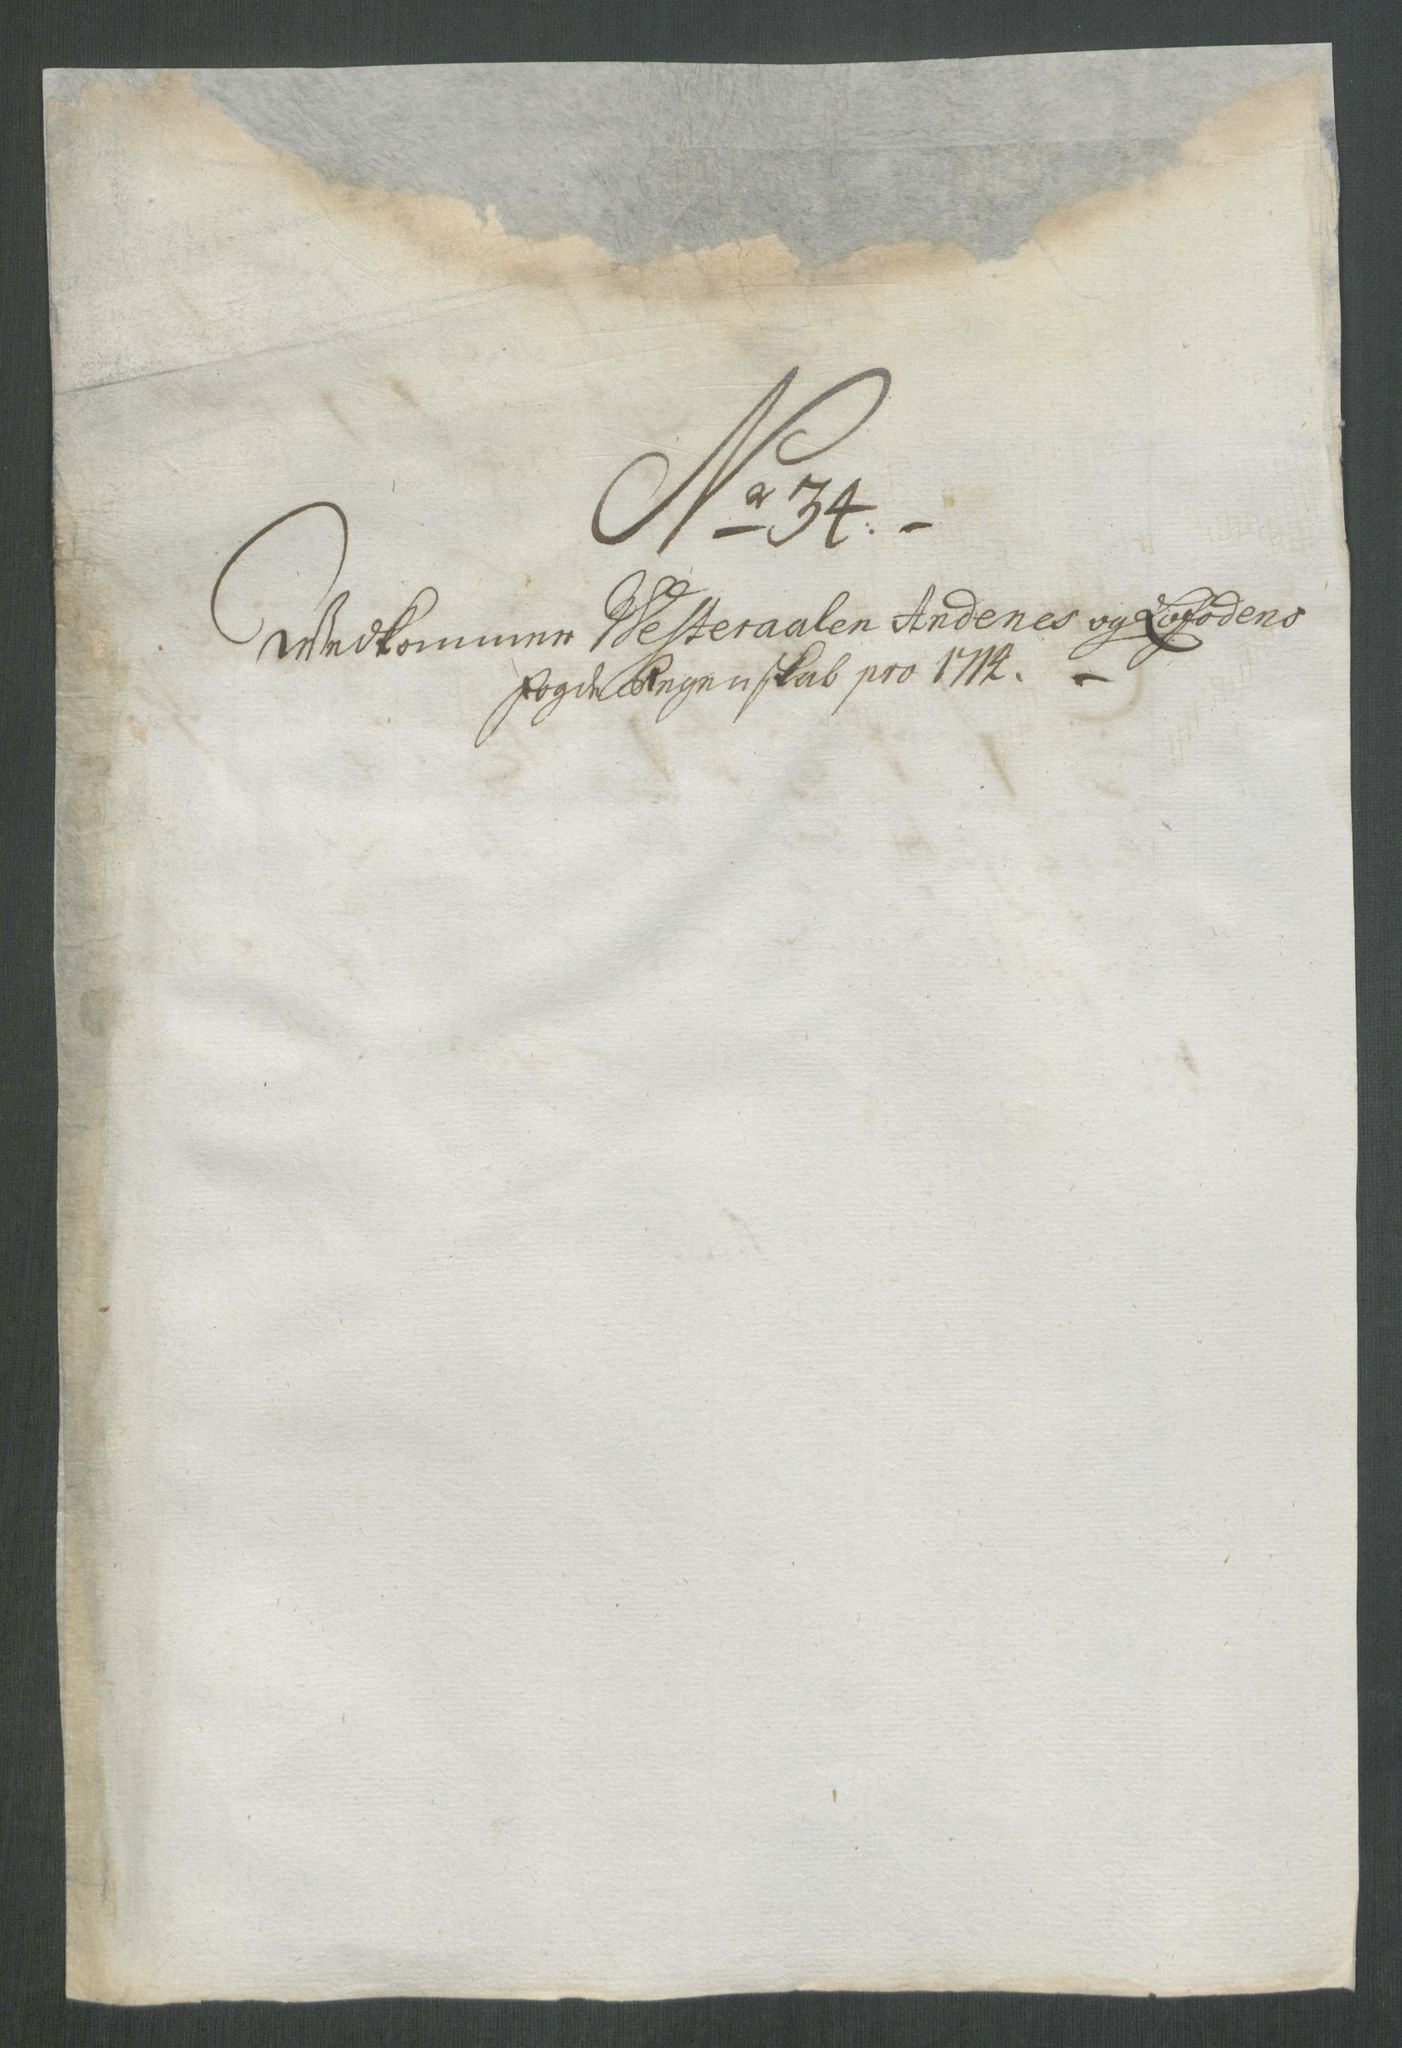 No 34.
Wedkommer Westeraalen Andenes og Lofodens
fogde Regenskab pro 1714.